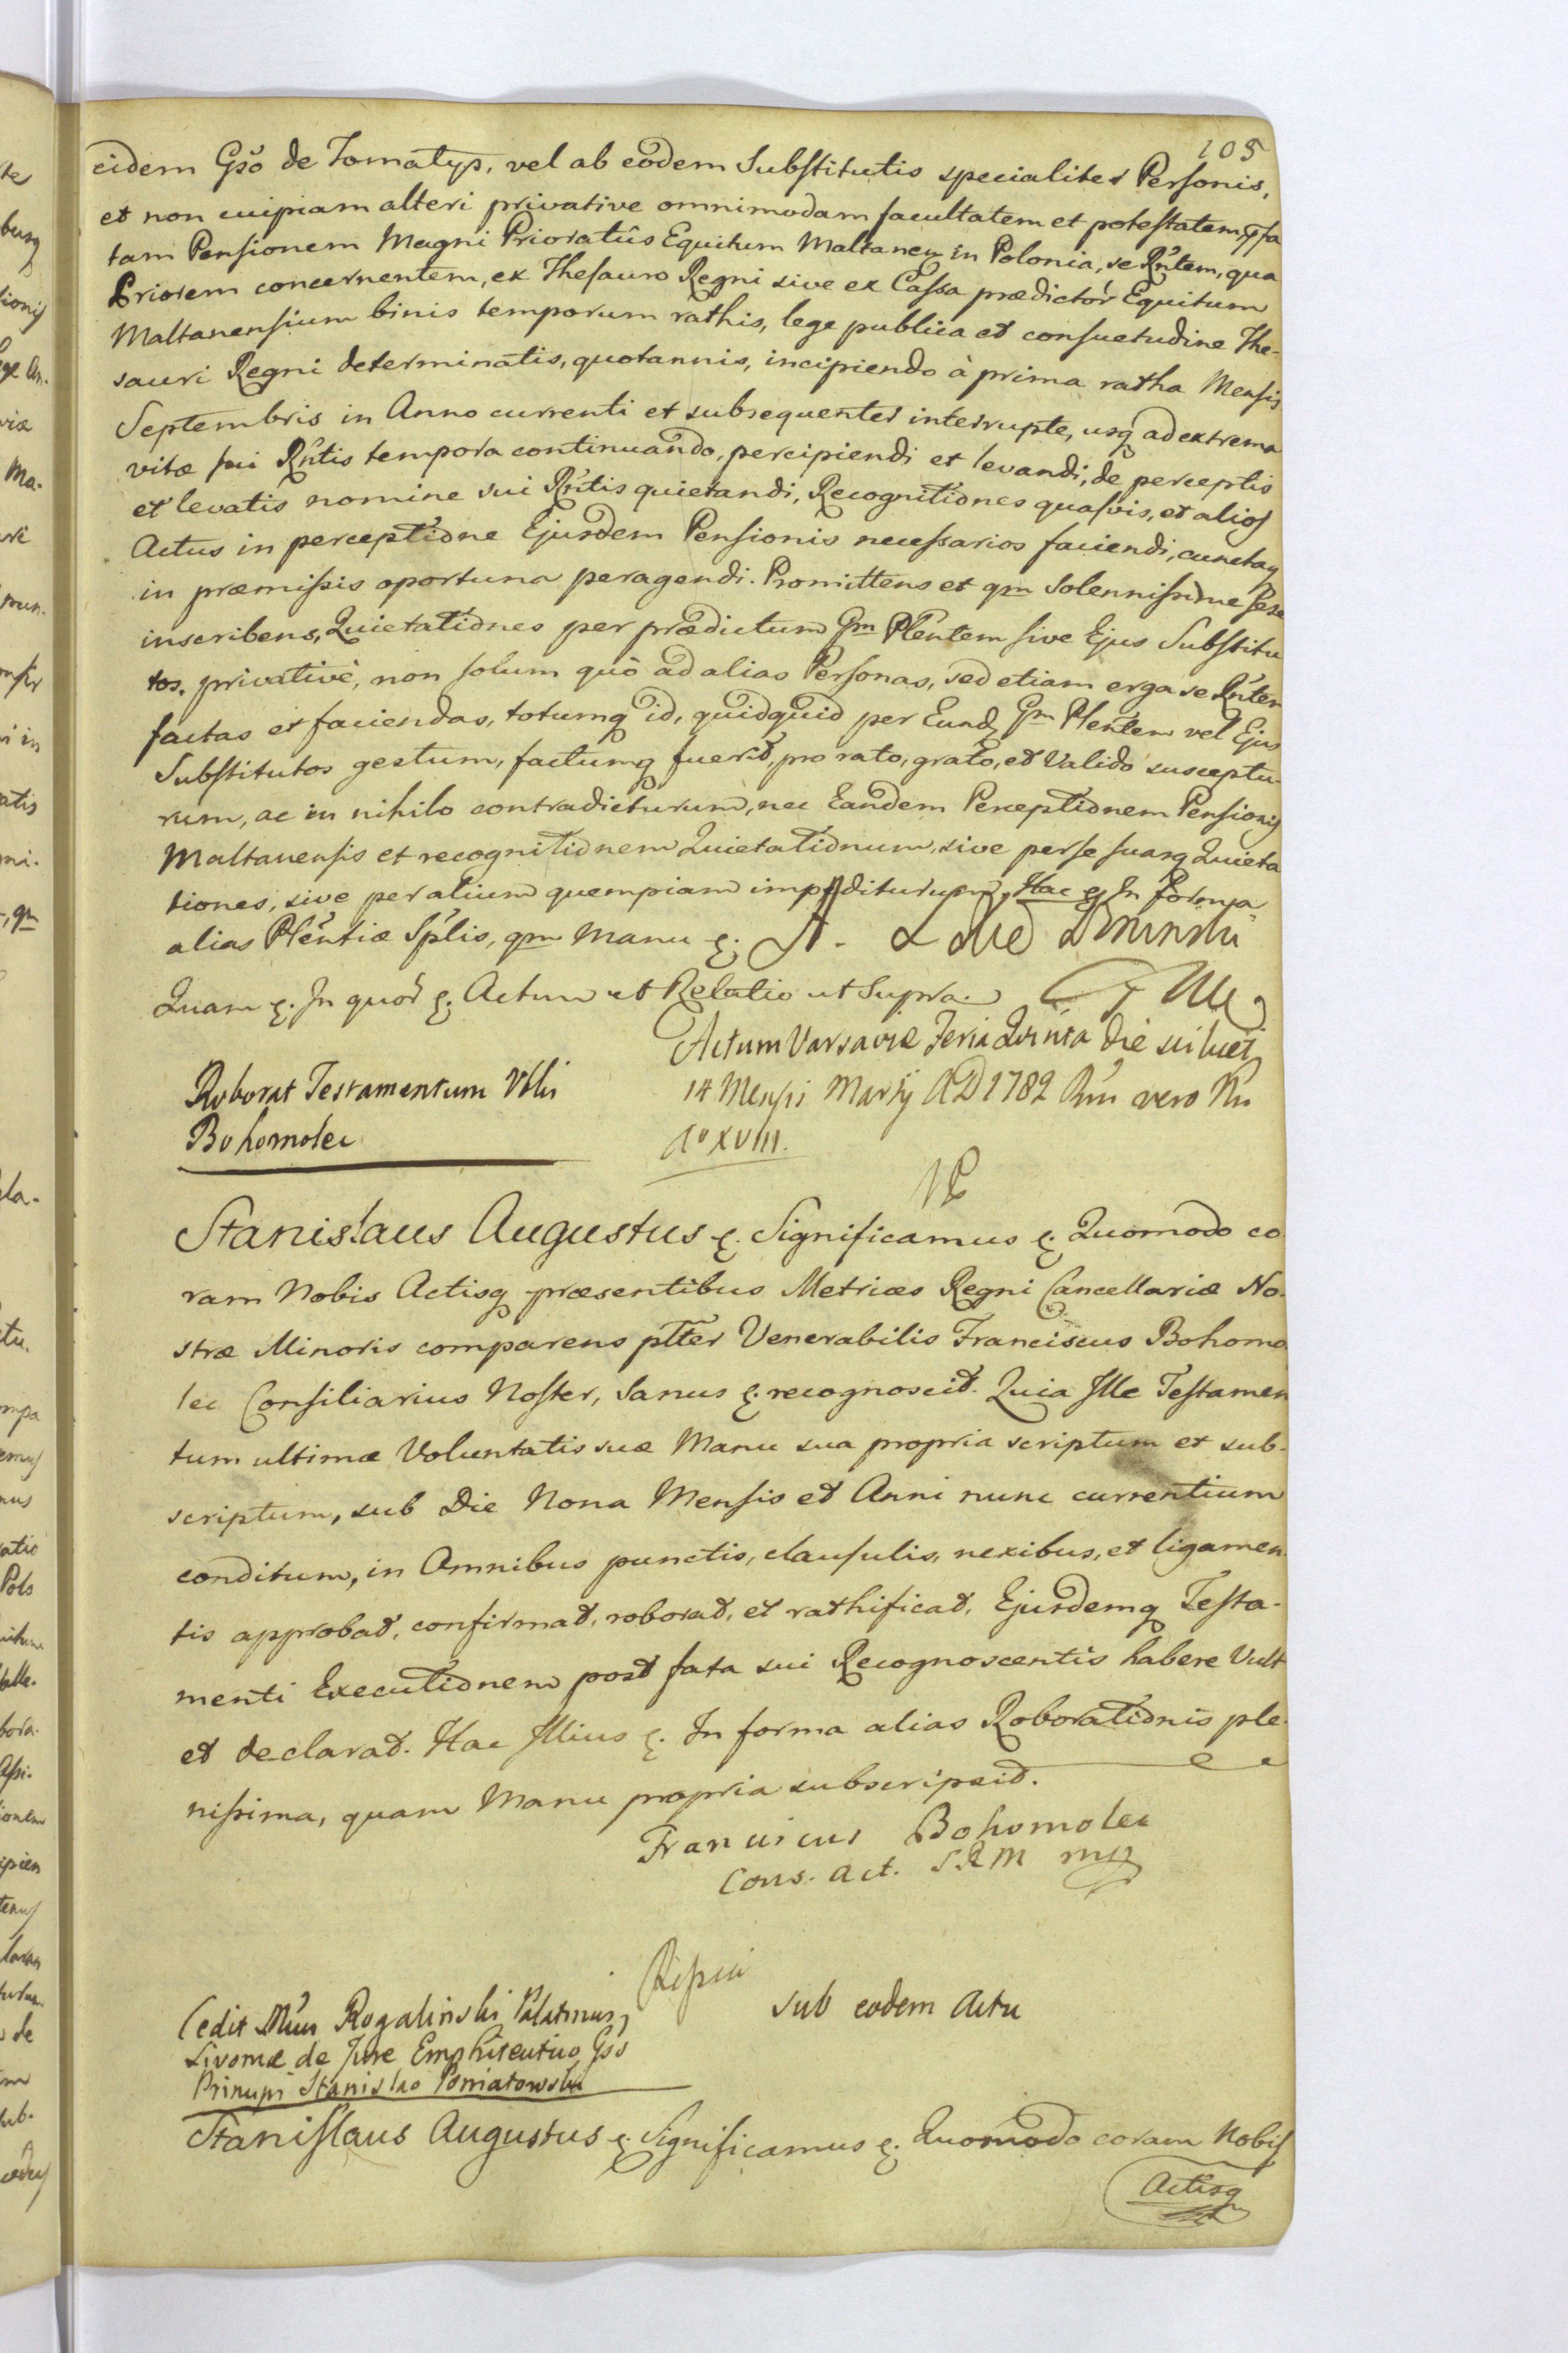 105
eidem Gso de Tomatys, vel ab eodem Substitutis specialiter Personis,
et non cuipiam alteri privative omnimodam facultatem et potestatem
tam Pensionem Magni Prioratûs Equitum Maltaneñ in Polonia, se Rntem, qua
Priorem concernentem, ex Thesauro Regni sive ex Cassa prædictor Equitum
Maltanensium binis temporum rathis, lege publica et consuetudine The-
sauri Regni determinatis, quotannis, incipiendo à prima ratha Mensis
Septembris in Anno currenti et subsequenter interrupte, usq ad extrema
vitæ sui Rntis tempora continuando, percipiendi et levandi, de perceptis
et levatis nomine sui Rntis quietandi, Recognitiones quasvis, et alios
Actus in perceptione Ejusdem Pensionis necessarios faciendi, cunctaq
in præmissis oportuna peragendi. Promittens et qm Solennissime sese
inscribens, Quietationes per prædictum Gm Plentem sive Ejus Substitu
tos, privative, non solum quò ad alias Personas, sed etiam erga se Rntem
factas et faciendas, totumq id, quidquid per Eund Gm Plentem vel Ejus
Substitutos gestum, factumq fuerit, pro rato, grato, et valido susceptu-
rum, ac in nihilo contradicturum, nec Eandem Perceptionem Pensionis
Maltanensis et recognitionem Quietationum, sive per se suasq Quieta
tiones, sive per alium quempiam impediturum, Hac et In forma
alias Plentiæ Splis, qm Manu &.
Quam &. In quor &. Actum ut Relatio ut Supra.
Actum Varsaviæ Feria Quinta die scilicet
14 Mensis Martij AD 1782 Rni vero Nri
Ao XVIII.
Roborat Testamentum Vblis
Bohomolec
Stanislaus Augustus &. Significamus &. Quomodo co
ram Nobis Actisq præsentibus Metrices Regni Cancellariæ No-
stræ Minoris comparens plter Venerabilis Franciscus Bohomo
lec Consiliarius Noster, Sanus &. recognoscit. Quia Ille Testamen
tum ultimæ Voluntatis suæ Manu sua propria scriptum et sub-
scriptum, sub Die Nona Mensis et Anni nunc currentium
conditum, in Omnibus punctis, clausulis, nexibus, et ligamen-
tis approbat, confirmat, roborat, et rathificat, Ejusdemq Testa-
menti Executionem post fata sui Recognoscentis habere Vult
et declarat. Hac Illius &. In forma alias Roborationis ple-
nissima, quam Manu propria subscripsit.
Franciscus Bohomolec
Cons. Act. S R M mp
Cedit Mcus Rogalinski Palatinus
Livoniæ de Jure Emphiteutico Gso
Principi Stanislao Poniatowski
sub eodem Actu
Stanislaus Augustus &. Significamus &. Quomodo coram Nobis
Actisq